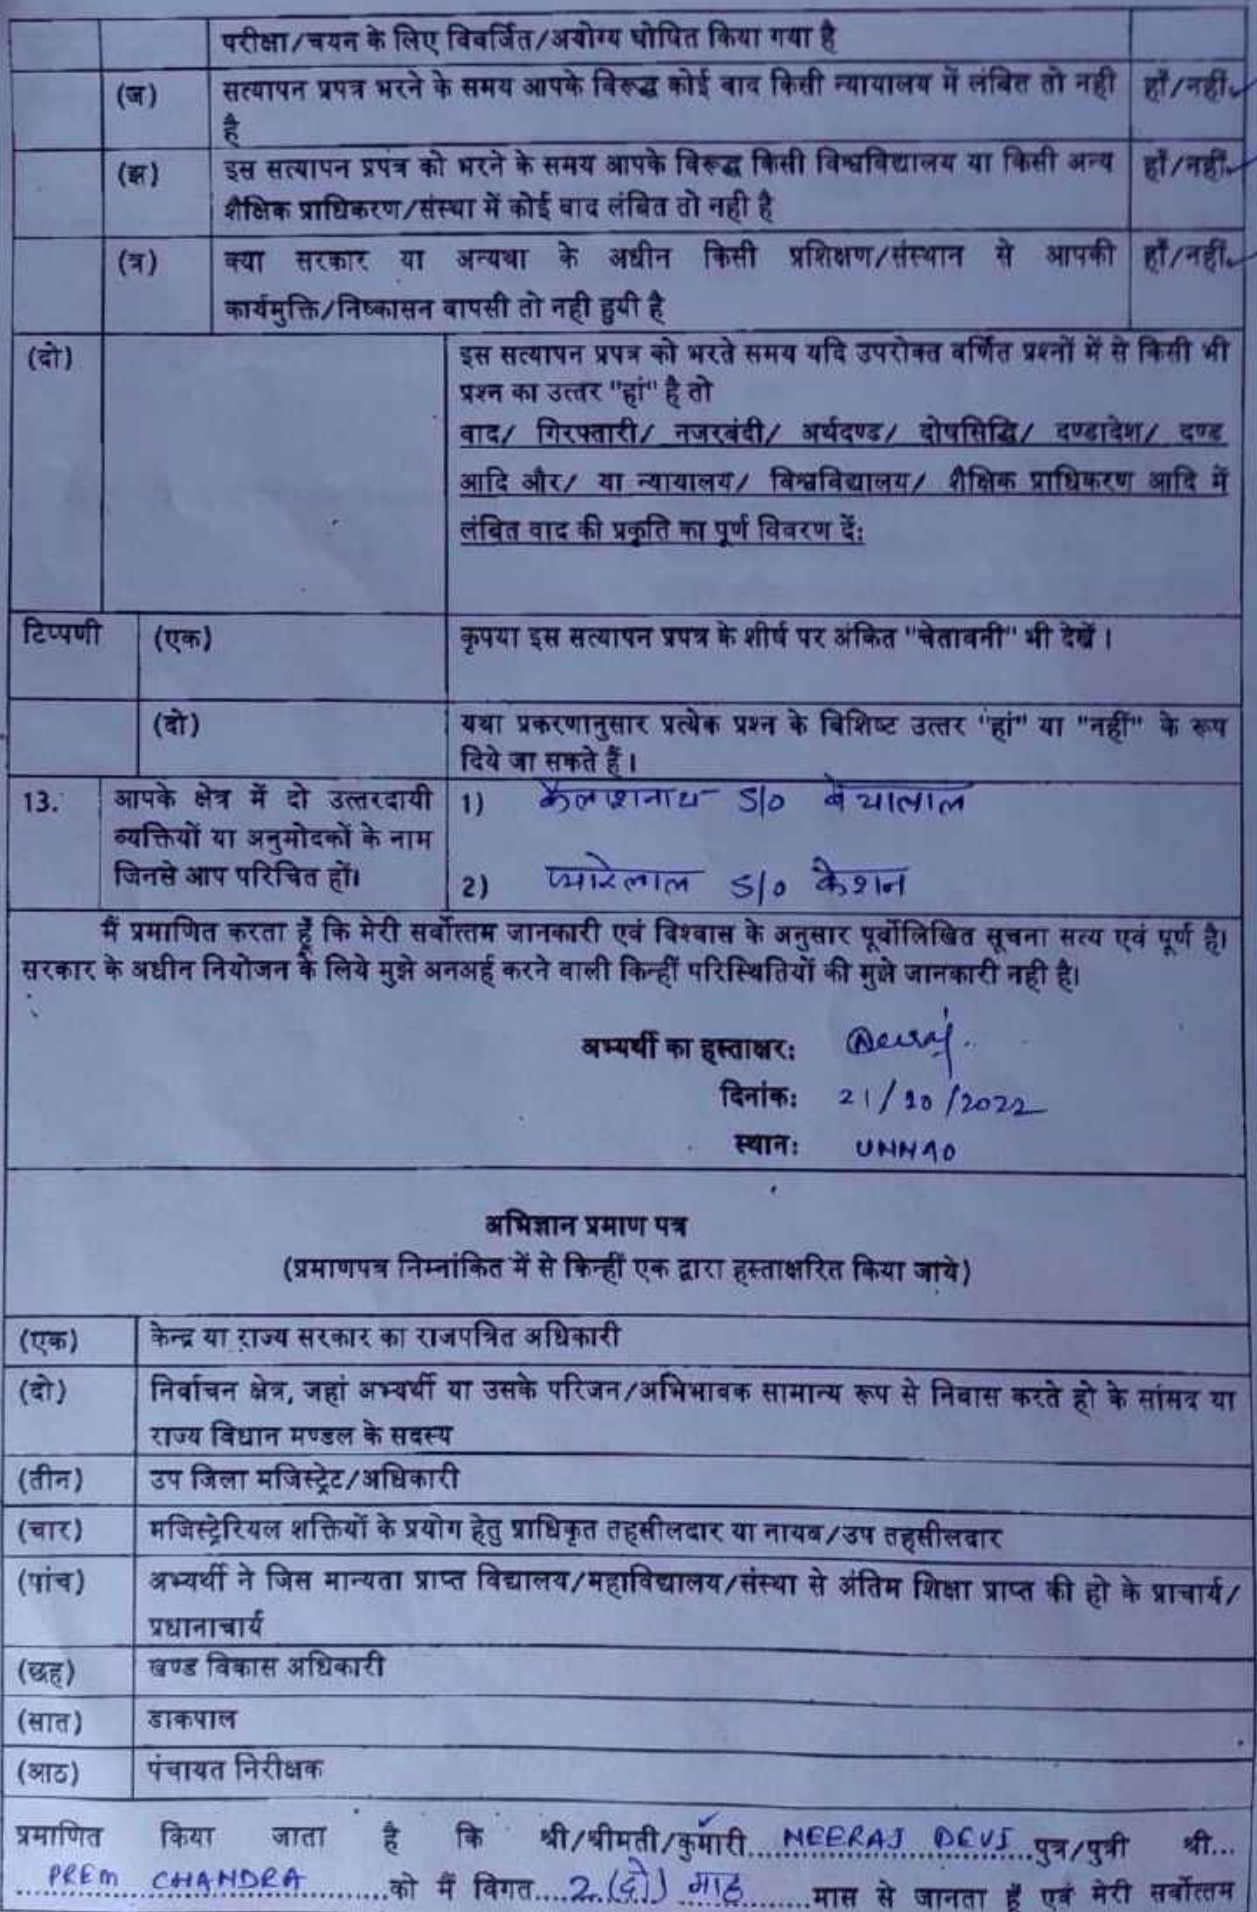 परीक्षा/चयन के लिए विवर्जित/अयोग्य घोषित किया गया है
(ज) सत्यापन प्रपत्र भरने के समय आपके विरूद्ध कोई वाद किसी न्यायालय में लंबित तो नही हाँ/नहीं
है
(झ) इस सत्यापन प्रपत्र को भरने के समय आपके विरूद्ध किसी विश्वविद्यालय या किसी अन्य हाँ/नहीं
शैक्षिक प्राधिकरण/संस्था में कोई वाद लंबित तो नही है
(त्र) क्या सरकार या अन्यथा के अधीन किसी प्रशिक्षण/संस्थान से आपकी हाँ/नहीं
कार्यमुक्ति/निष्कासन वापसी तो नही हुयी है
(दो) इस सत्यापन प्रपत्र को भरते समय यदि उपरोक्त वर्णित प्रश्नों में से किसी भी
प्रश्न का उत्तर "हां" है तो
वाद/ गिरफ्तारी/ नजरबंदी/ अर्थदण्ड/ दोषसिद्धि/ दण्डादेश/ दण्ड
आदि और/ या न्यायालय/ विश्वविद्यालय/ शैक्षिक प्राधिकरण आदि में
लंबित वाद की प्रकृति का पूर्ण विवरण दें:
टिप्पणी (एक) कृपया इस सत्यापन प्रपत्र के शीर्ष पर अंकित "चेतावनी" भी देखें।
(दो) यथा प्रकरणानुसार प्रत्येक प्रश्न के विशिष्ट उत्तर "हां" या "नहीं" के रूप
दिये जा सकते हैं।
13. आपके क्षेत्र में दो उत्तरदायी 1) कैलाशनाथ S/o बेचालाल
व्यक्तियों या अनुमोदकों के नाम
जिनसे आप परिचित हों। 2) प्यारेलाल S/o केशन
मैं प्रमाणित करता हूँ कि मेरी सर्वोत्तम जानकारी एवं विश्वास के अनुसार पूर्वोलिखित सूचना सत्य एवं पूर्ण है।
सरकार के अधीन नियोजन के लिये मुझे अनअर्ह करने वाली किन्हीं परिस्थितियों की मुझे जानकारी नही है।
अभ्यर्थी का हस्ताक्षर: Neeraj.
दिनांक: 21/10/2022
स्थान: UNNAO
अभिज्ञान प्रमाण पत्र
(प्रमाणपत्र निम्नांकित में से किन्हीं एक द्वारा हस्ताक्षरित किया जाये)
(एक) केन्द्र या राज्य सरकार का राजपत्रित अधिकारी
(दो) निर्वाचन क्षेत्र, जहां अभ्यर्थी या उसके परिजन/अभिभावक सामान्य रूप से निवास करते हो के सांसद या
राज्य विधान मण्डल के सदस्य
(तीन) उप जिला मजिस्ट्रेट/अधिकारी
(चार) मजिस्ट्रेरियल शक्तियों के प्रयोग हेतु प्राधिकृत तहसीलदार या नायब/उप तहसीलदार
(पांच) अभ्यर्थी ने जिस मान्यता प्राप्त विद्यालय/महाविद्यालय/संस्था से अंतिम शिक्षा प्राप्त की हो के प्राचार्य/
प्रधानाचार्य
(छह) खण्ड विकास अधिकारी
(सात) डाकपाल
(आठ) पंचायत निरीक्षक
प्रमाणित किया जाता है कि श्री/श्रीमती/कुमारी NEERAJ DEVI पुत्र/पुत्री श्री...
PREM CHANDRA को मैं विगत 2 (दो) माह मास से जानता हूँ एवं मेरी सर्वोत्तम